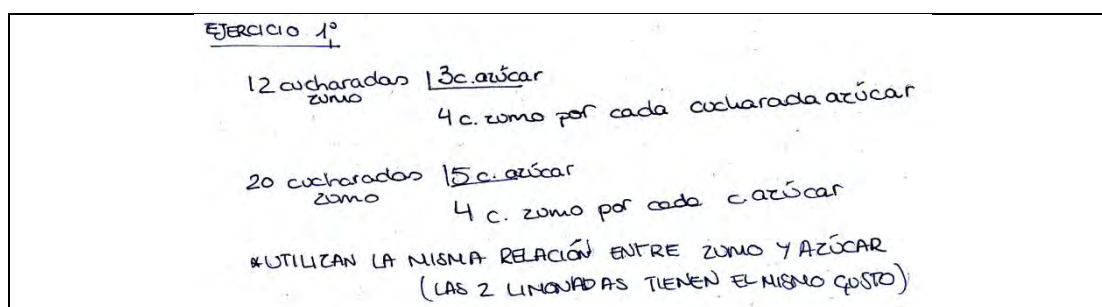 EJERCICIO 1º
12 cucharadas zumo | 3c. azúcar
4 c. zumo por cada cucharada azúcar
20 cucharadas zumo | 5 c. azúcar
4 c. zumo por cada c. azúcar
*UTILIZAN LA MISMA RELACIÓN ENTRE ZUMO Y AZÚCAR
(LAS 2 LIMONADAS TIENEN EL MISMO GUSTO)